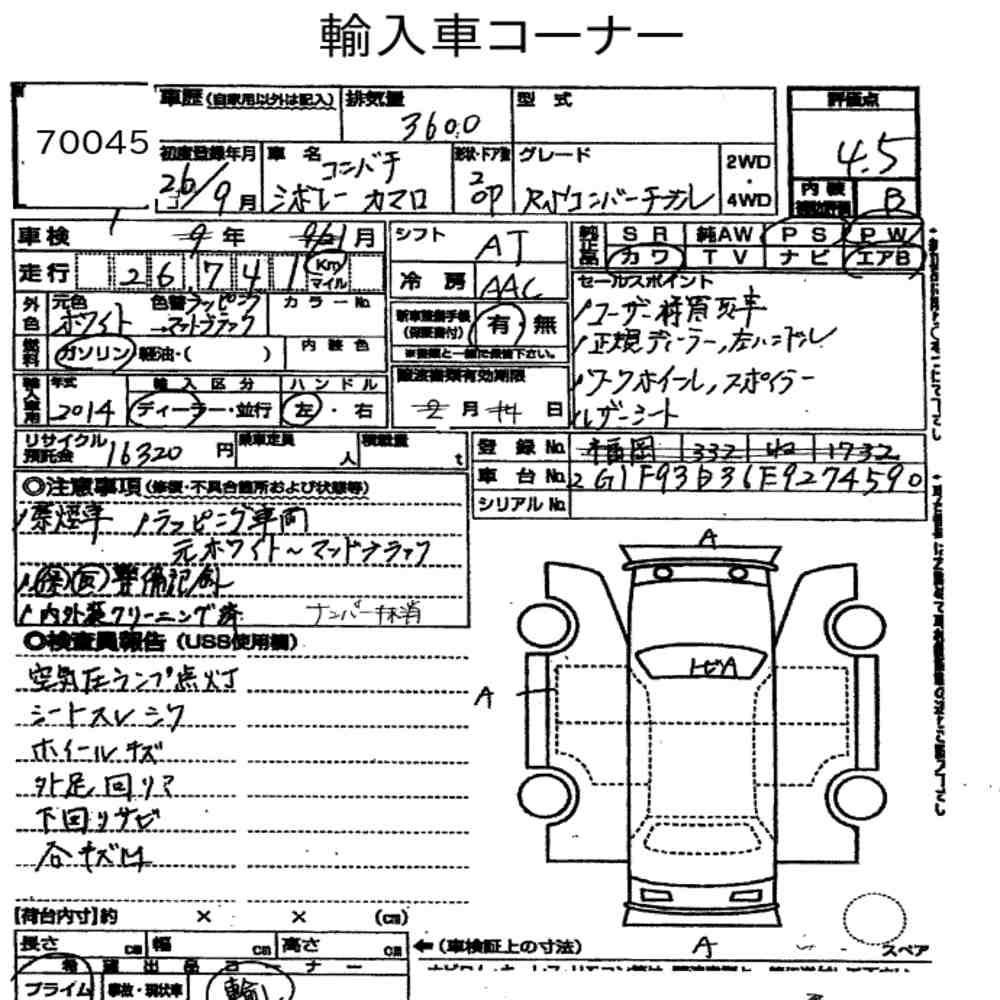 輸入車コーナー
70045
車歴(自家用以外は記入) 排気量 3600 型式
評価点 4.5
初度登録年月 26/9月 車名 コンバチ シボレー カマロ 形状・ドア数 2 OP グレード RSコンバーチブル 2WD・4WD
内装 B
車検 9年 月 シフト AT
純正品 SR 純AW PS PW
カワ TV ナビ エアB
走行 26,741 Km マイル 冷房 AAC
セールスポイント
外色 元色 ホワイト 色替ラッピング →マットブラック カラーNo.
新車整備手帳(保証書付) 有・無
ユーザー様買取車
正規ディーラー,左ハンドル
燃料 ガソリン・軽油・( ) 内装色
※書類と一緒に保管下さい。
輸入車用 年式 2014 輸入区分 ディーラー・並行 ハンドル 左・右
譲渡書類有効期限 2月14日
ワークホイール,スポイラー
レザーシート
リサイクル預託金 16320円 乗車定員 人 積載量 t
登録No. 福岡 332 1732
車台No. 2G1F93D36E9274590
シリアルNo.
◎注意事項(修復・不具合箇所および状態等)
禁煙車 ラッピング車両
元ホワイト~マットブラック
保 取 整備記録
内外装クリーニング済 ナンバー抹消
◎検査員報告(USS使用欄)
空気圧ランプ点灯
シートスレシワ
ホイールキズ
外足回りア
下回りサビ
A
トビA
A
A
【荷台内寸】約 × × (cm)
長さ cm 幅 cm 高さ cm
←(車検証上の寸法)
スペア
コーナー
プライム 事故・現状車 輸入